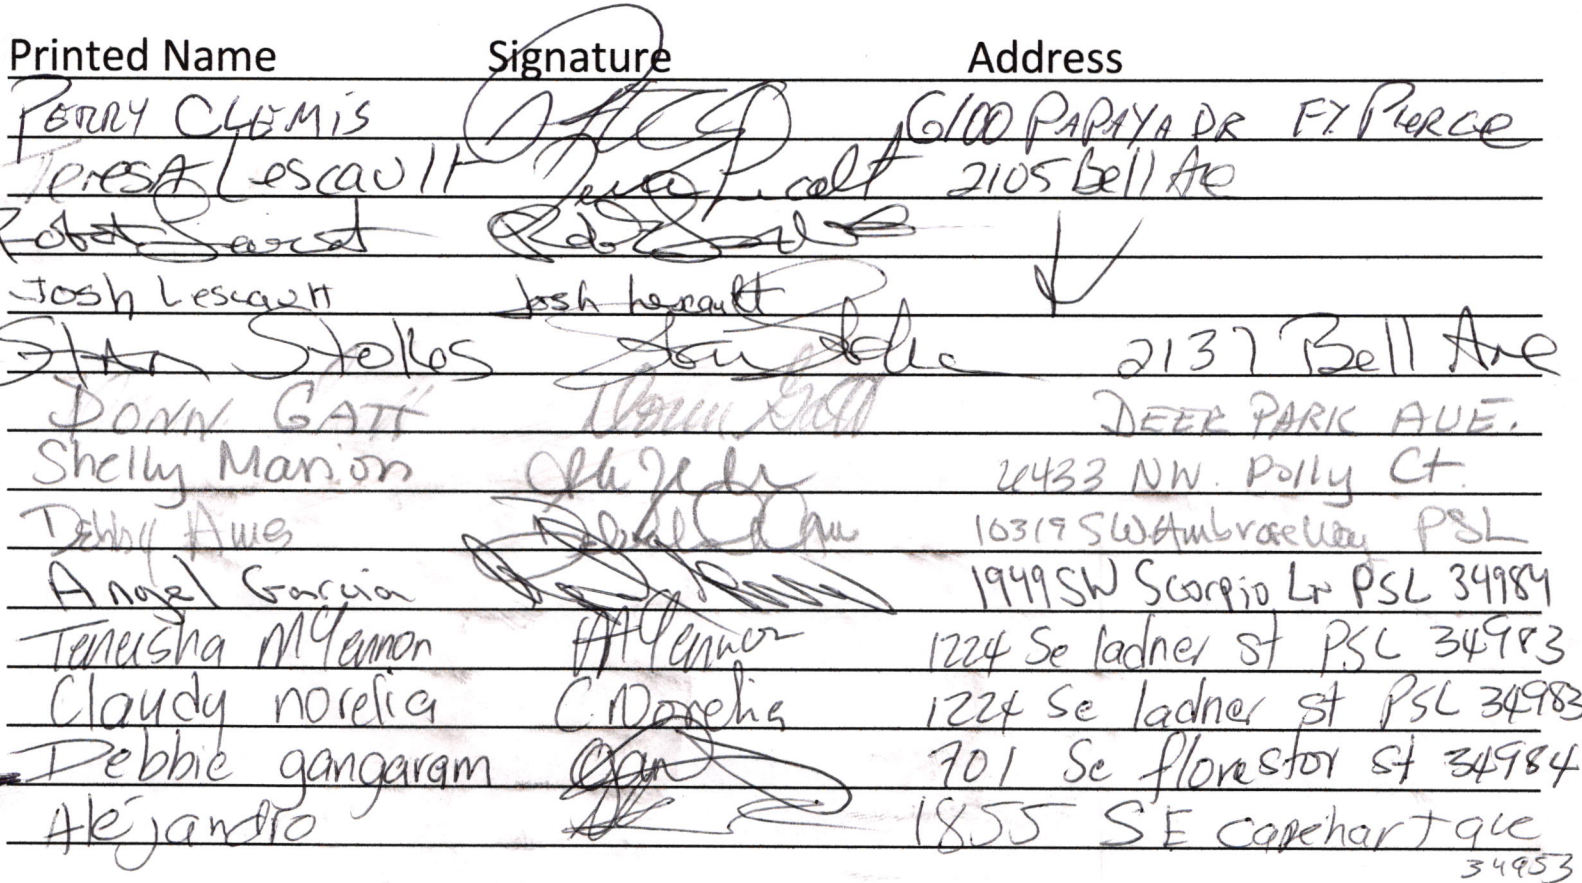 Printed Name Signature Address
PERRY CLEMIS 6100 PAPAYA DR FT. PIERCE
Teresa Lescault 2105 Bell Ave
Robert
Josh Lescault Josh Lescault
Stan Stokes Stan Stokes 2137 Bell Ave
DONN GATT Donn Gatt DEER PARK AUE.
Shelly Marion 433 NW. Polly Ct.
Debby Ames 10319 SW Ambrose Way PSL
Angel Garcia 1949 SW Scorpio Ln PSL 34984
Teneisha MYennon MYennon 1224 Se ladner st PSL 34983
Claudy norelia C. Norelia 1224 Se ladner st PSL 34983
Debbie gangaram Gan 701 Se florestor st 34984
Alejandro 1855 SE capehart ave
34953